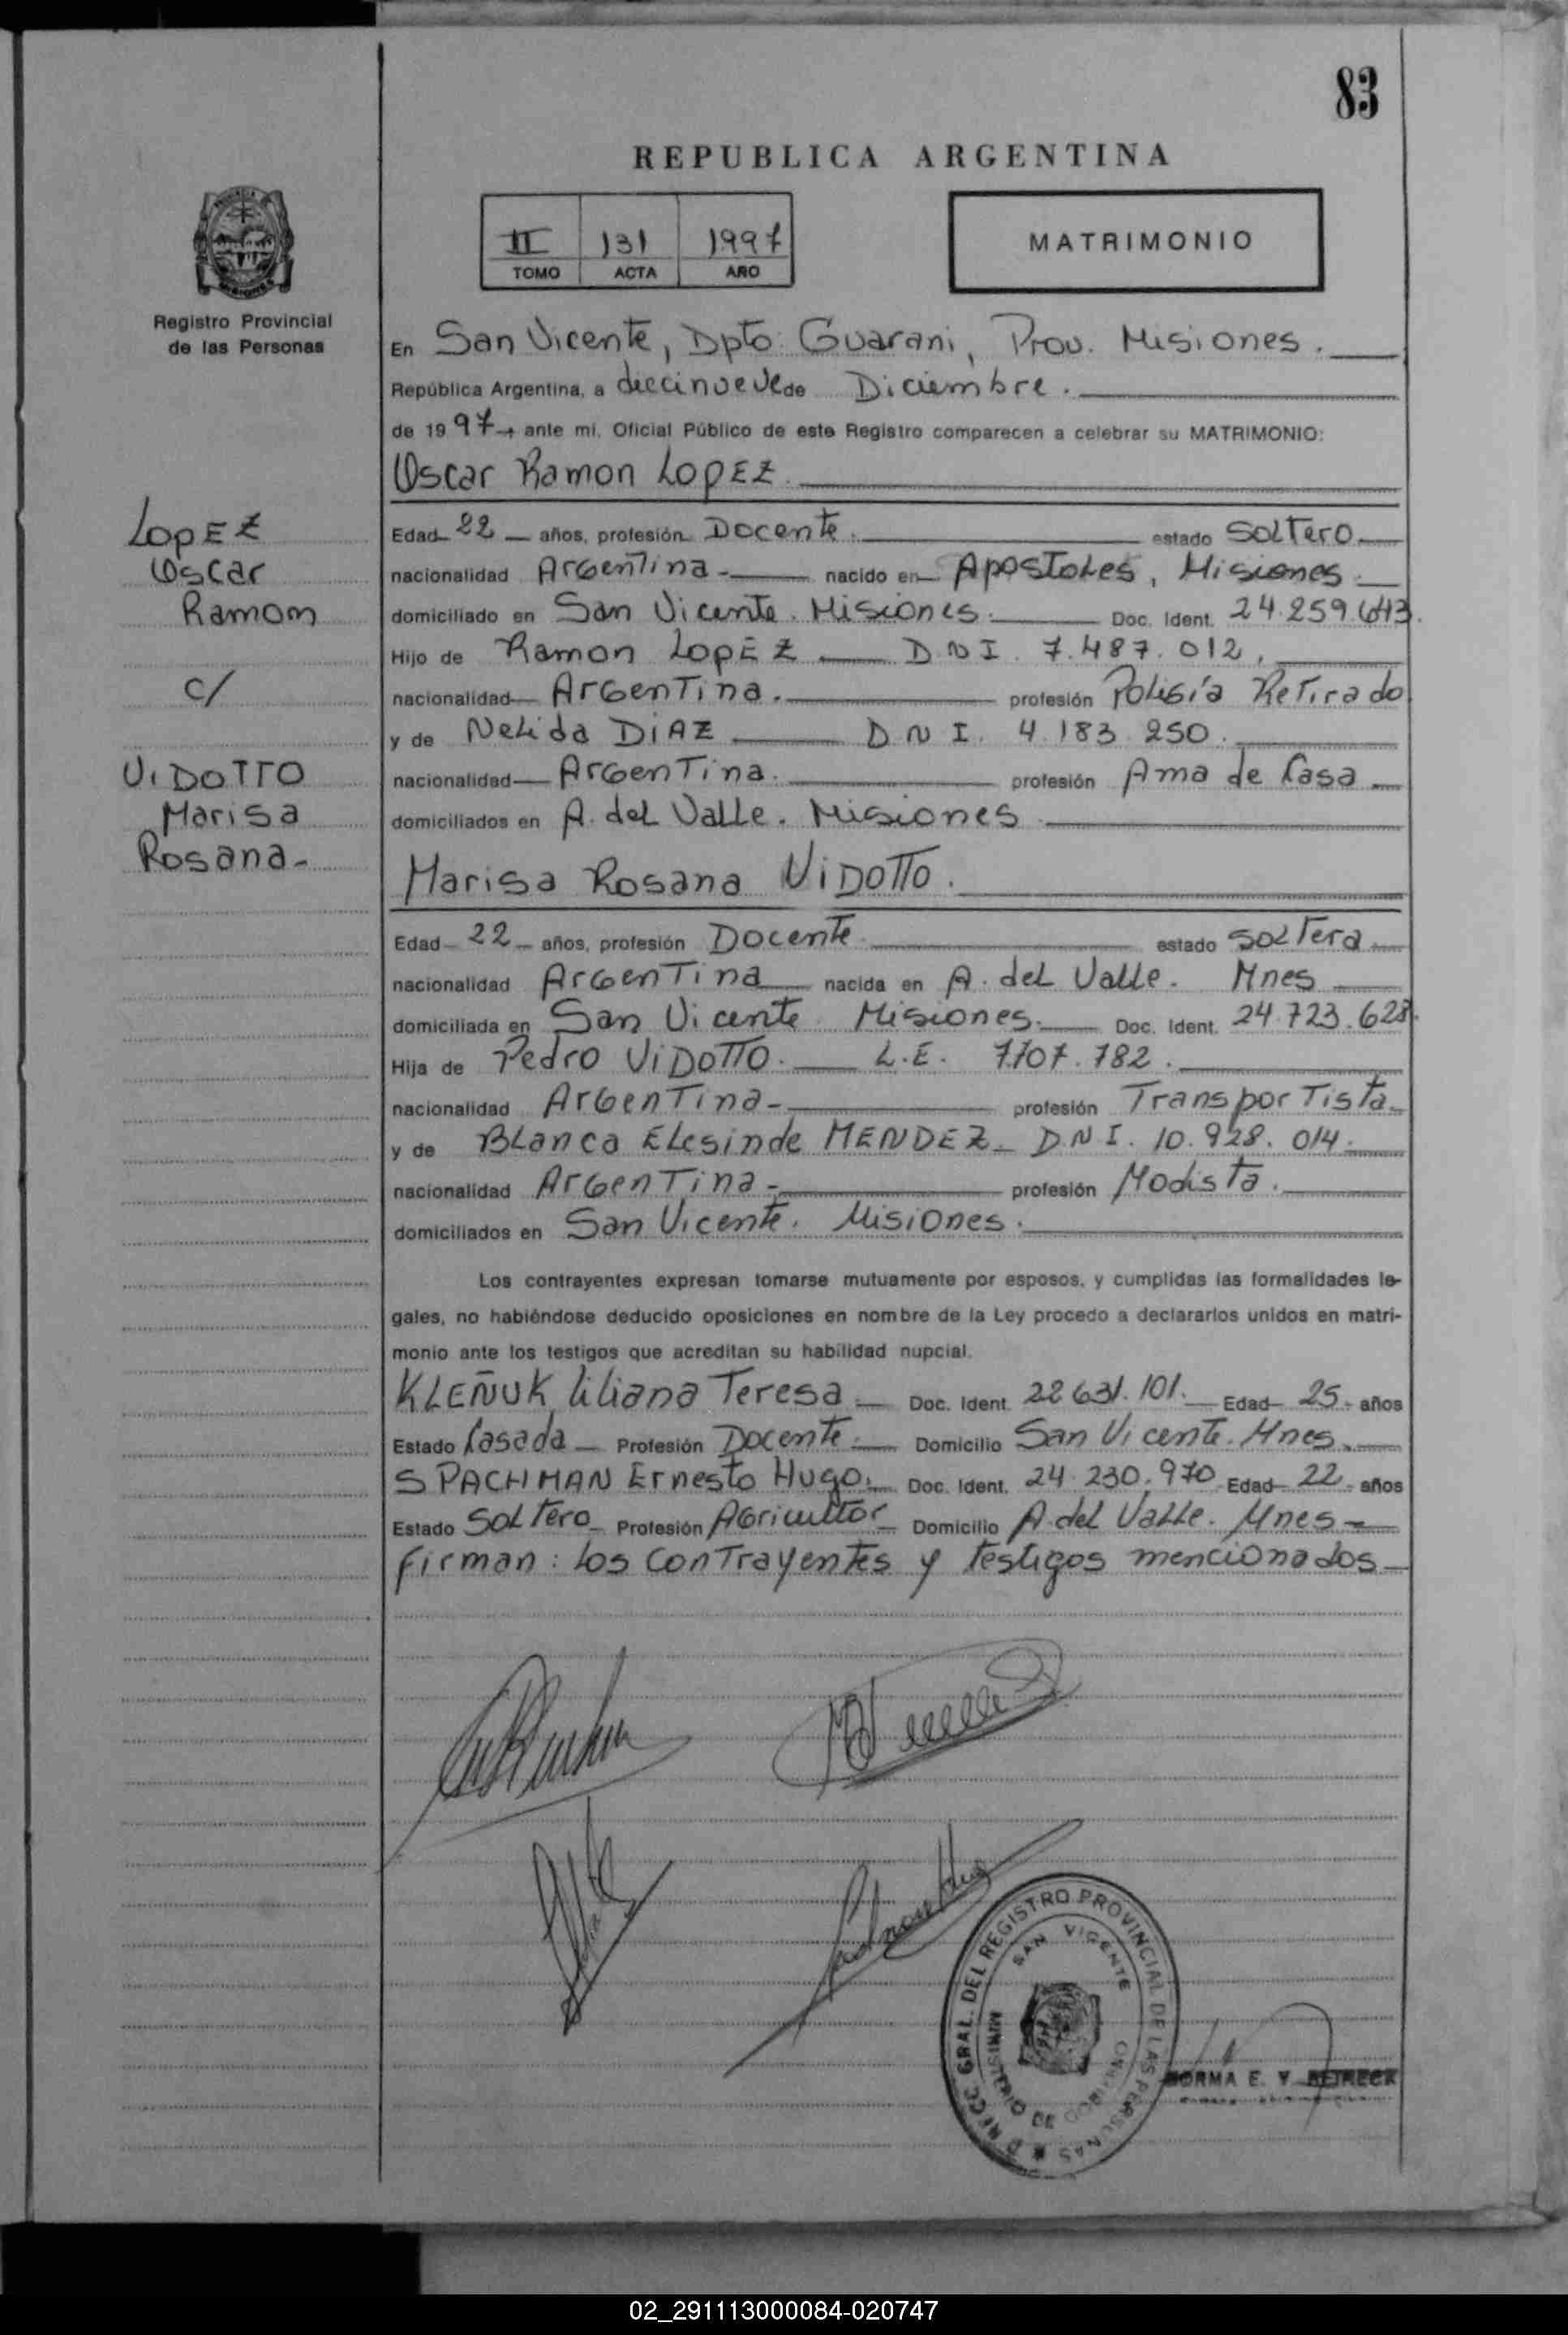 83
REPUBLICA ARGENTINA
II 131 1997
TOMO ACTA AÑO
MATRIMONIO
Registro Provincial
de las Personas
En San Vicente, Dpto: Guarani, Prov. Misiones.
República Argentina, a diecinueve de Diciembre.
de 1997 ante mi, Oficial Público de este Registro comparecen a celebrar su MATRIMONIO:
Oscar Ramon LOPEZ.
LOPEZ
Oscar
Ramon
c/
VIDOTTO
Marisa
Rosana-
Edad 22 años, profesión Docente. estado Soltero
nacionalidad Argentina- nacido en Apostoles, Misiones
domiciliado en San Vicente. Misiones. Doc. Ident. 24.259.643.
Hijo de Ramon LOPEZ D.N.I. 7.487.012,
nacionalidad Argentina. profesión Polisía Retirado
y de Nelida DIAZ D N I. 4.183.250.
nacionalidad Argentina. profesión Ama de Casa
domiciliados en A. del Valle. Misiones
Marisa Rosana VIDOTTO.
Edad 22 años, profesión Docente estado Soltera
nacionalidad Argentina nacida en A. del Valle. Mnes
domiciliada en San Vicente Misiones. Doc. Ident. 24.723.628.
Hija de Pedro VIDOTTO. L.E. 7.707.782.
nacionalidad Argentina- profesión Transportista-
y de Blanca Elesinde MENDEZ- D.N.I. 10.928.014.
nacionalidad Argentina- profesión Modista.
domiciliados en San Vicente. Misiones.
Los contrayentes expresan tomarse mutuamente por esposos, y cumplidas las formalidades le-
gales, no habiéndose deducido oposiciones en nombre de la Ley procedo a declararlos unidos en matri-
monio ante los testigos que acreditan su habilidad nupcial.
KLEÑUK Liliana Teresa Doc. Ident. 22.631.101. Edad 25 años
Estado Casada Profesión Docente. Domicilio San Vicente. Mnes.
SPACHMAN Ernesto Hugo. Doc. Ident. 24.230.970 Edad 22 años
Estado Soltero Profesión Agricultor Domicilio A. del Valle. Mnes-
Firman: los contrayentes y testigos mencionados
GRAL. DEL REGISTRO PROVINCIAL DE LAS PERSONAS
SAN VICENTE
MINISTERIO DE GOBIERNO
NORMA E. V.
02_291113000084-020747